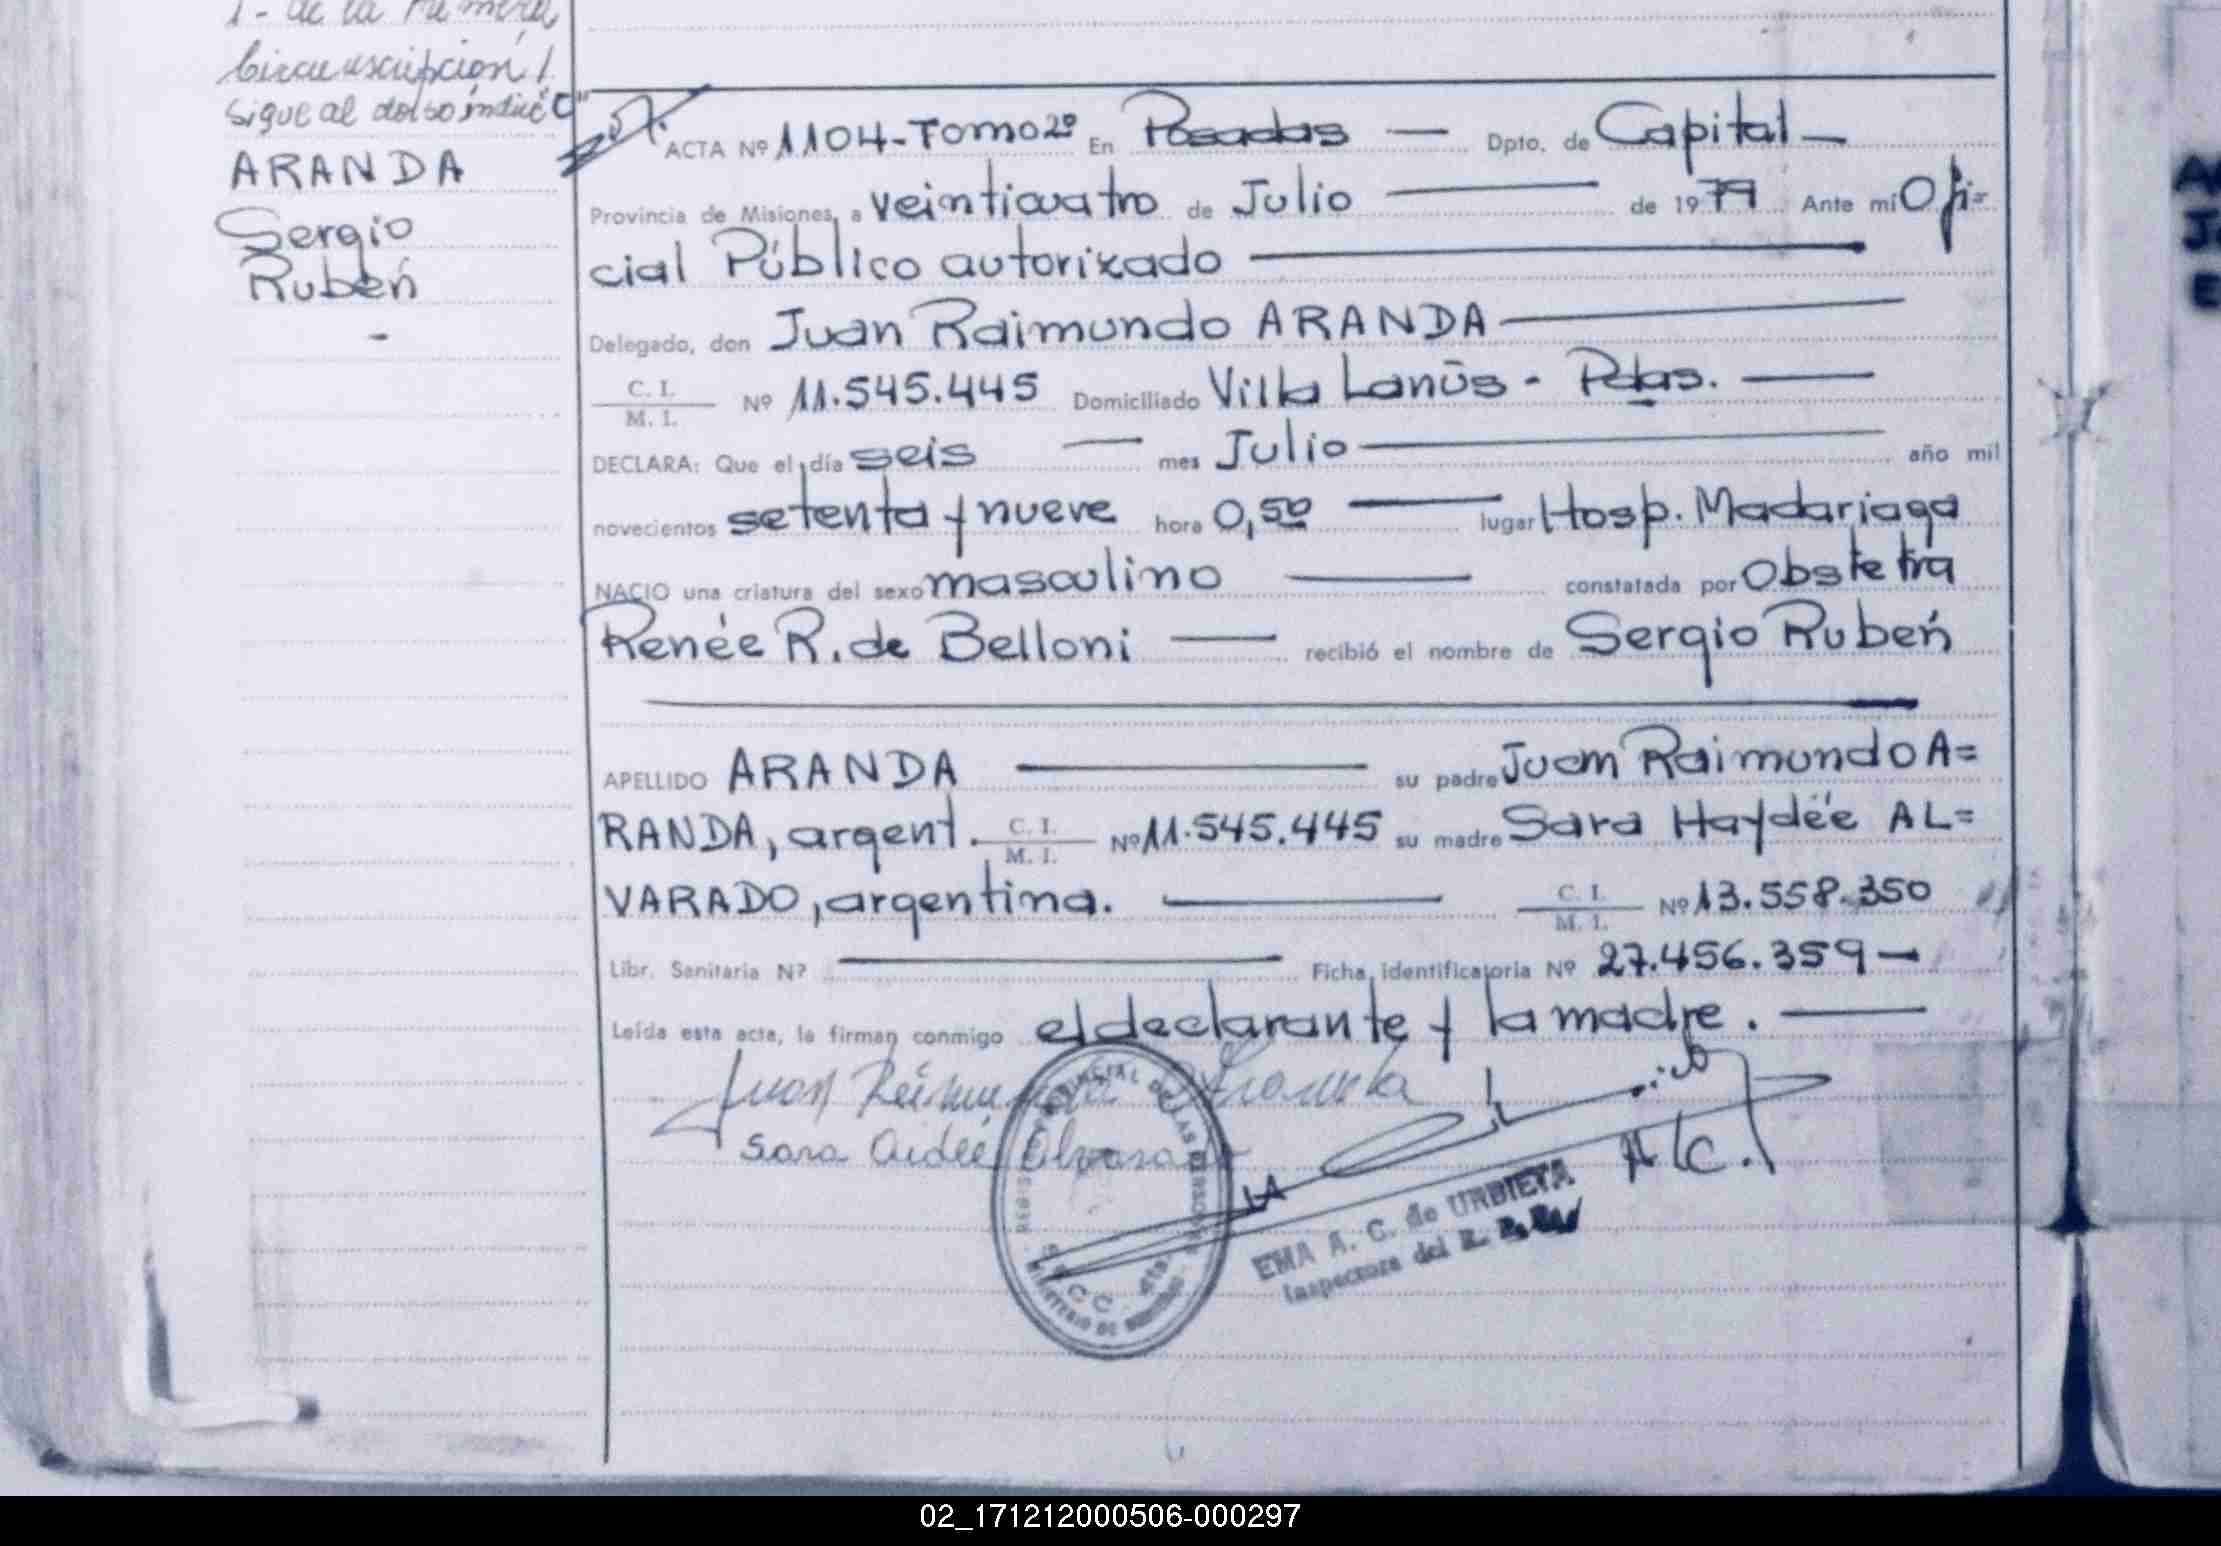 1- de la Primera
Circunscripción/.
Sigue al dorso índice "C"
ARANDA
Sergio
Rubén
-
257.
ACTA Nº 1104-Tomo 2º En Posadas — Dpto. de Capital —
Provincia de Misiones, a veinticuatro de Julio — de 1979 Ante mi Ofi=
cial Público autorizado —
Delegado, don Juan Raimundo ARANDA —
C. I.
M. I. Nº 11.545.445 Domiciliado Villa Lanús - Pdas. —
DECLARA: Que el día seis — mes Julio — año mil
novecientos setenta y nueve hora 0,50 — lugar Hosp. Madariaga
NACIO una criatura del sexo masculino — constatada por Obstetra
Renée R. de Belloni — recibió el nombre de Sergio Rubén
APELLIDO ARANDA — su padre Juan Raimundo A=
RANDA, argent. C. I. M. I. Nº 11.545.445 su madre Sara Haydée AL=
VARADO, argentina. — C. I. M. I. Nº 13.558.350
Libr. Sanitaria Nº — Ficha identificatoria Nº 27.456.359 —
Leída esta acta, la firman conmigo el declarante y la madre. —
Juan Reimundo Aranda
Sara Aideé Alvarado
A/C.
REGISTRO PROVINCIAL DE LAS PERSONAS
MINISTERIO DE
EMA A. C. de URBIETA
Inspectora del R.
02_171212000506-000297